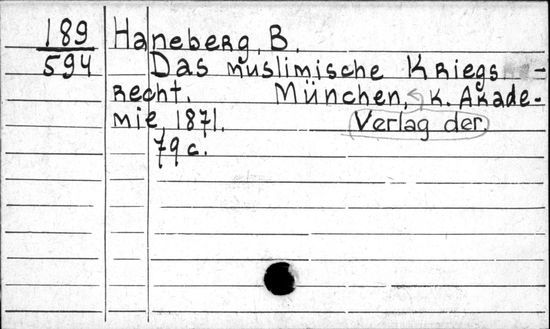 189 Haneberg, B.
594 Das muslimische Kriegs-
recht. München, K. Akade-
mie, 1871. Verlag der
79 c.